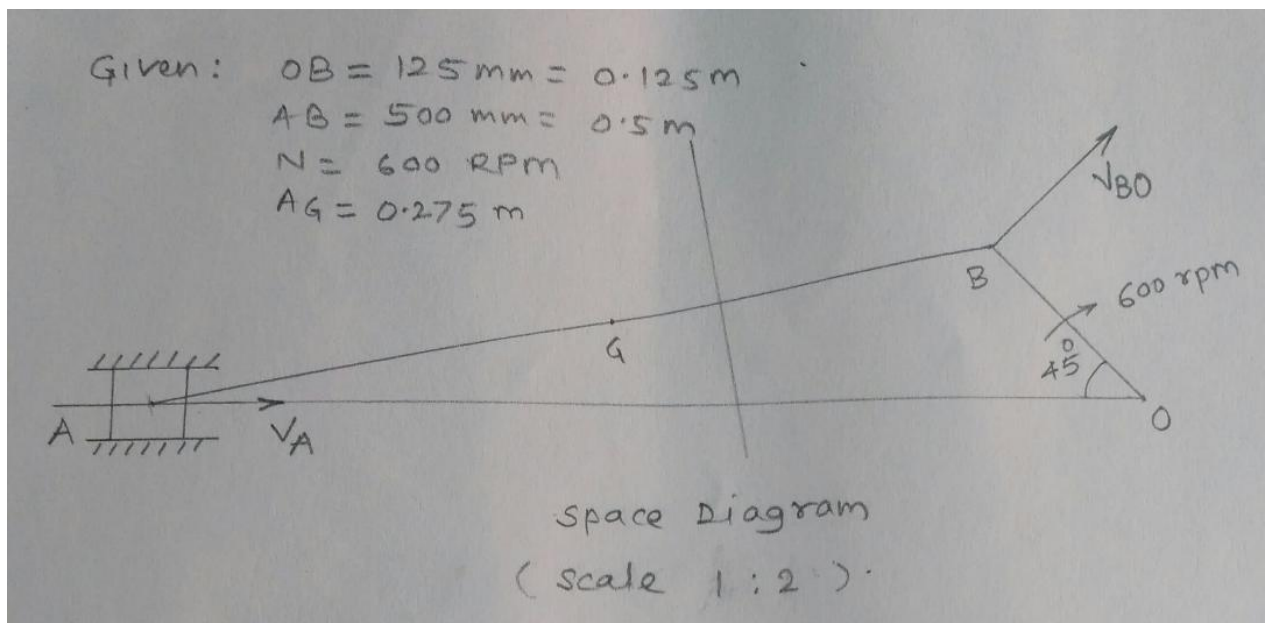 Given: OB = 125 mm = 0.125m
AB = 500 mm = 0.5m
N = 600 RPm
AG = 0.275 m
VBO
B
600 rpm
G
45°
A
VA
O
space Diagram
( scale 1:2 ).